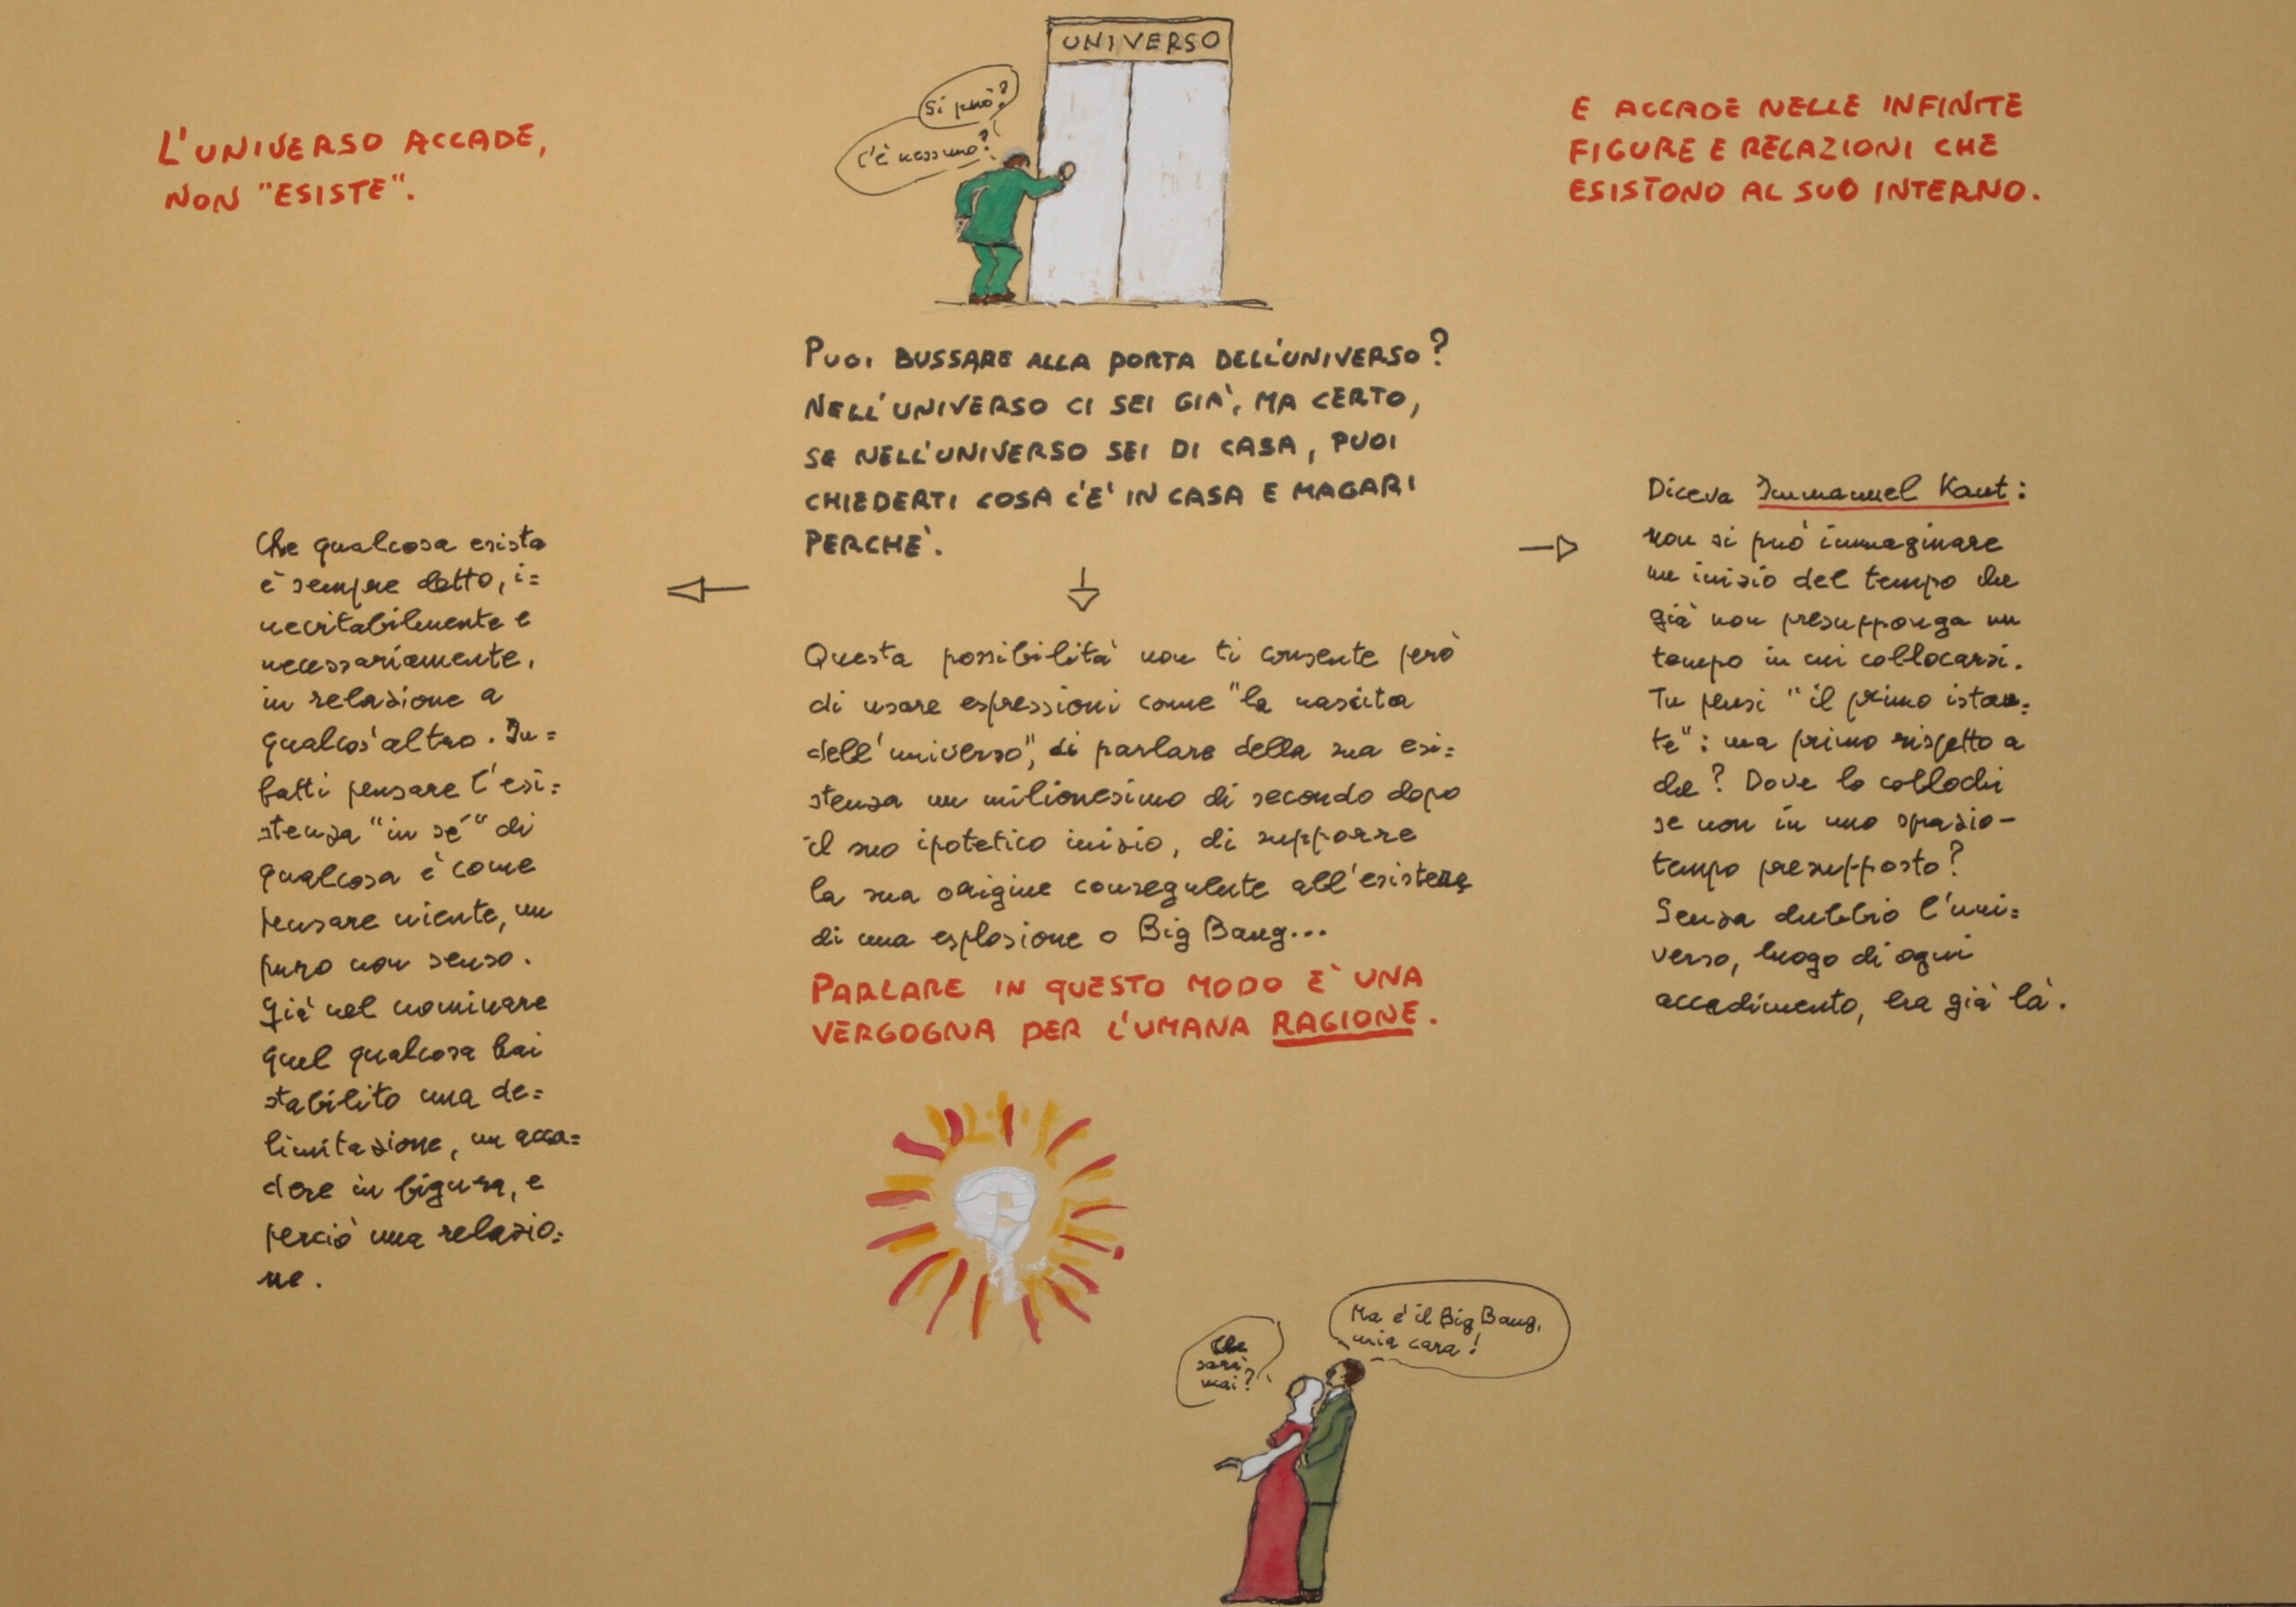 L'UNIVERSO ACCADE,
NON "ESISTE".
UNIVERSO
Si può?
C'è nessuno?
E ACCADE NELLE INFINITE
FIGURE E RELAZIONI CHE
ESISTONO AL SUO INTERNO.
PUOI BUSSARE ALLA PORTA DELL'UNIVERSO?
NELL'UNIVERSO CI SEI GIA', MA CERTO,
SE NELL'UNIVERSO SEI DI CASA, PUOI
CHIEDERTI COSA C'E' IN CASA E MAGARI
PERCHE'.
Che qualcosa esista
è sempre detto, i=
nevitabilmente e
necessariamente,
in relazione a
qualcos'altro. In=
fatti pensare l'esi=
stenza "in sé" di
qualcosa è come
pensare niente, un
puro non senso.
Già nel nominare
quel qualcosa hai
stabilito una de=
limitazione, un acca=
dere in figura, e
perciò una relazio=
ne.
Questa possibilità non ti consente però
di usare espressioni come "la nascita
dell'universo", di parlare della sua esi=
stenza un milionesimo di secondo dopo
il suo ipotetico inizio, di supporre
la sua origine conseguente all'esistenza
di una esplosione o Big Bang...
PARLARE IN QUESTO MODO E' UNA
VERGOGNA PER L'UMANA RAGIONE.
Diceva Immanuel Kant:
non si può immaginare
un inizio del tempo che
già non presupponga un
tempo in cui collocarsi.
Tu pensi "il primo istan=
te": ma primo rispetto a
che? Dove lo collochi
se non in uno spazio-
tempo presupposto?
Senza dubbio l'uni=
verso, luogo di ogni
accadimento, era già là.
Che
sarà
mai?
Ma è il Big Bang,
mia cara!